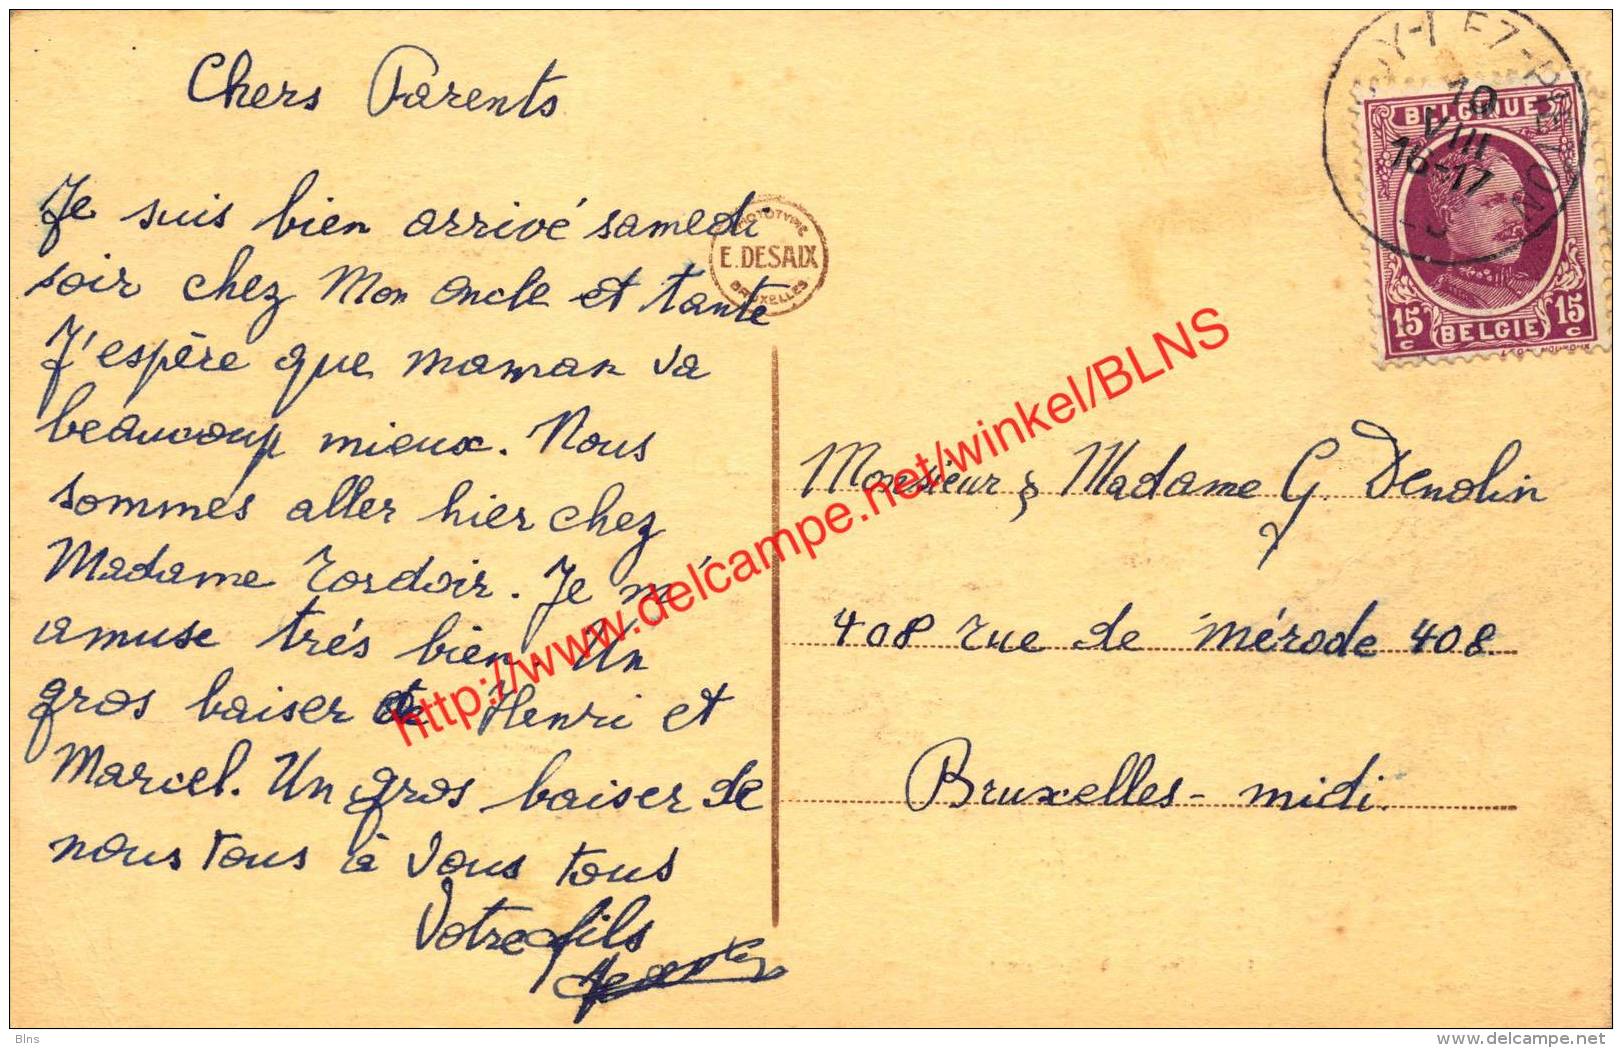 Chers Parents
Je suis bien arrivé samedi
soir chez Mon Oncle et tante
J'espère que maman va
beaucoup mieux. Nous
sommes aller hier chez
Madame Tordoir. Je m'
amuse trés bien. Un
gros baiser de Henri et
Marcel. Un gros baiser de
nous tous à vous tous
Votre fils
PHOTOTYPIE
E. DESAIX
BRUXELLES
10
VIII
16-17
BELGIQUE
15 c 15 c
BELGIE
Monsieur & Madame G. Denolin
408 rue de Mérode 408
Bruxelles-midi.
http://www.delcampe.net/winkel/BLNS
Blns
www.delcampe.net